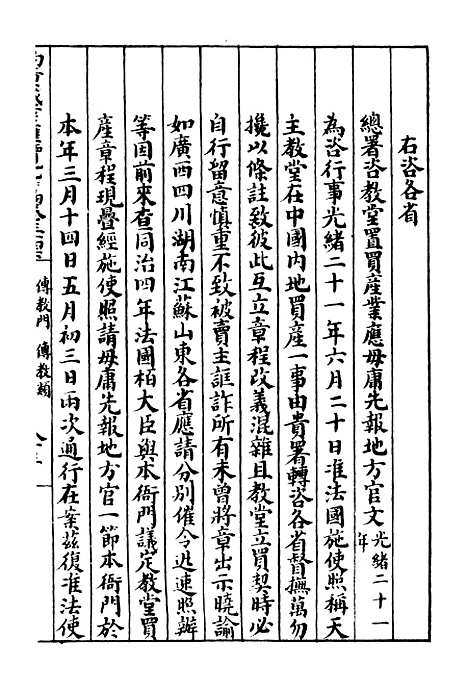 右咨各省
總署咨教堂置買產業應毋庸先報地方官文光緒二十一年
為咨行事光緒二十一年六月二十日准法國施使照稱天
主教堂在中國內地買產一事由貴署轉咨各省督撫萬勿
攙以條註致彼此互立章程改義混雜且教堂立買契時必
自行留意慎重不致被賣主誆詐所有未曾將章出示曉諭
如廣西四川湖南江蘇山東各省應請分別催令迅速照辦
等因前來查同治四年法國柏大臣與本衙門議定教堂買
產章程現疊經施使照請毋庸先報地方官一節本衙門於
本年三月十四日五月初三日兩次通行在案茲復准法使
傳教門 傳教類